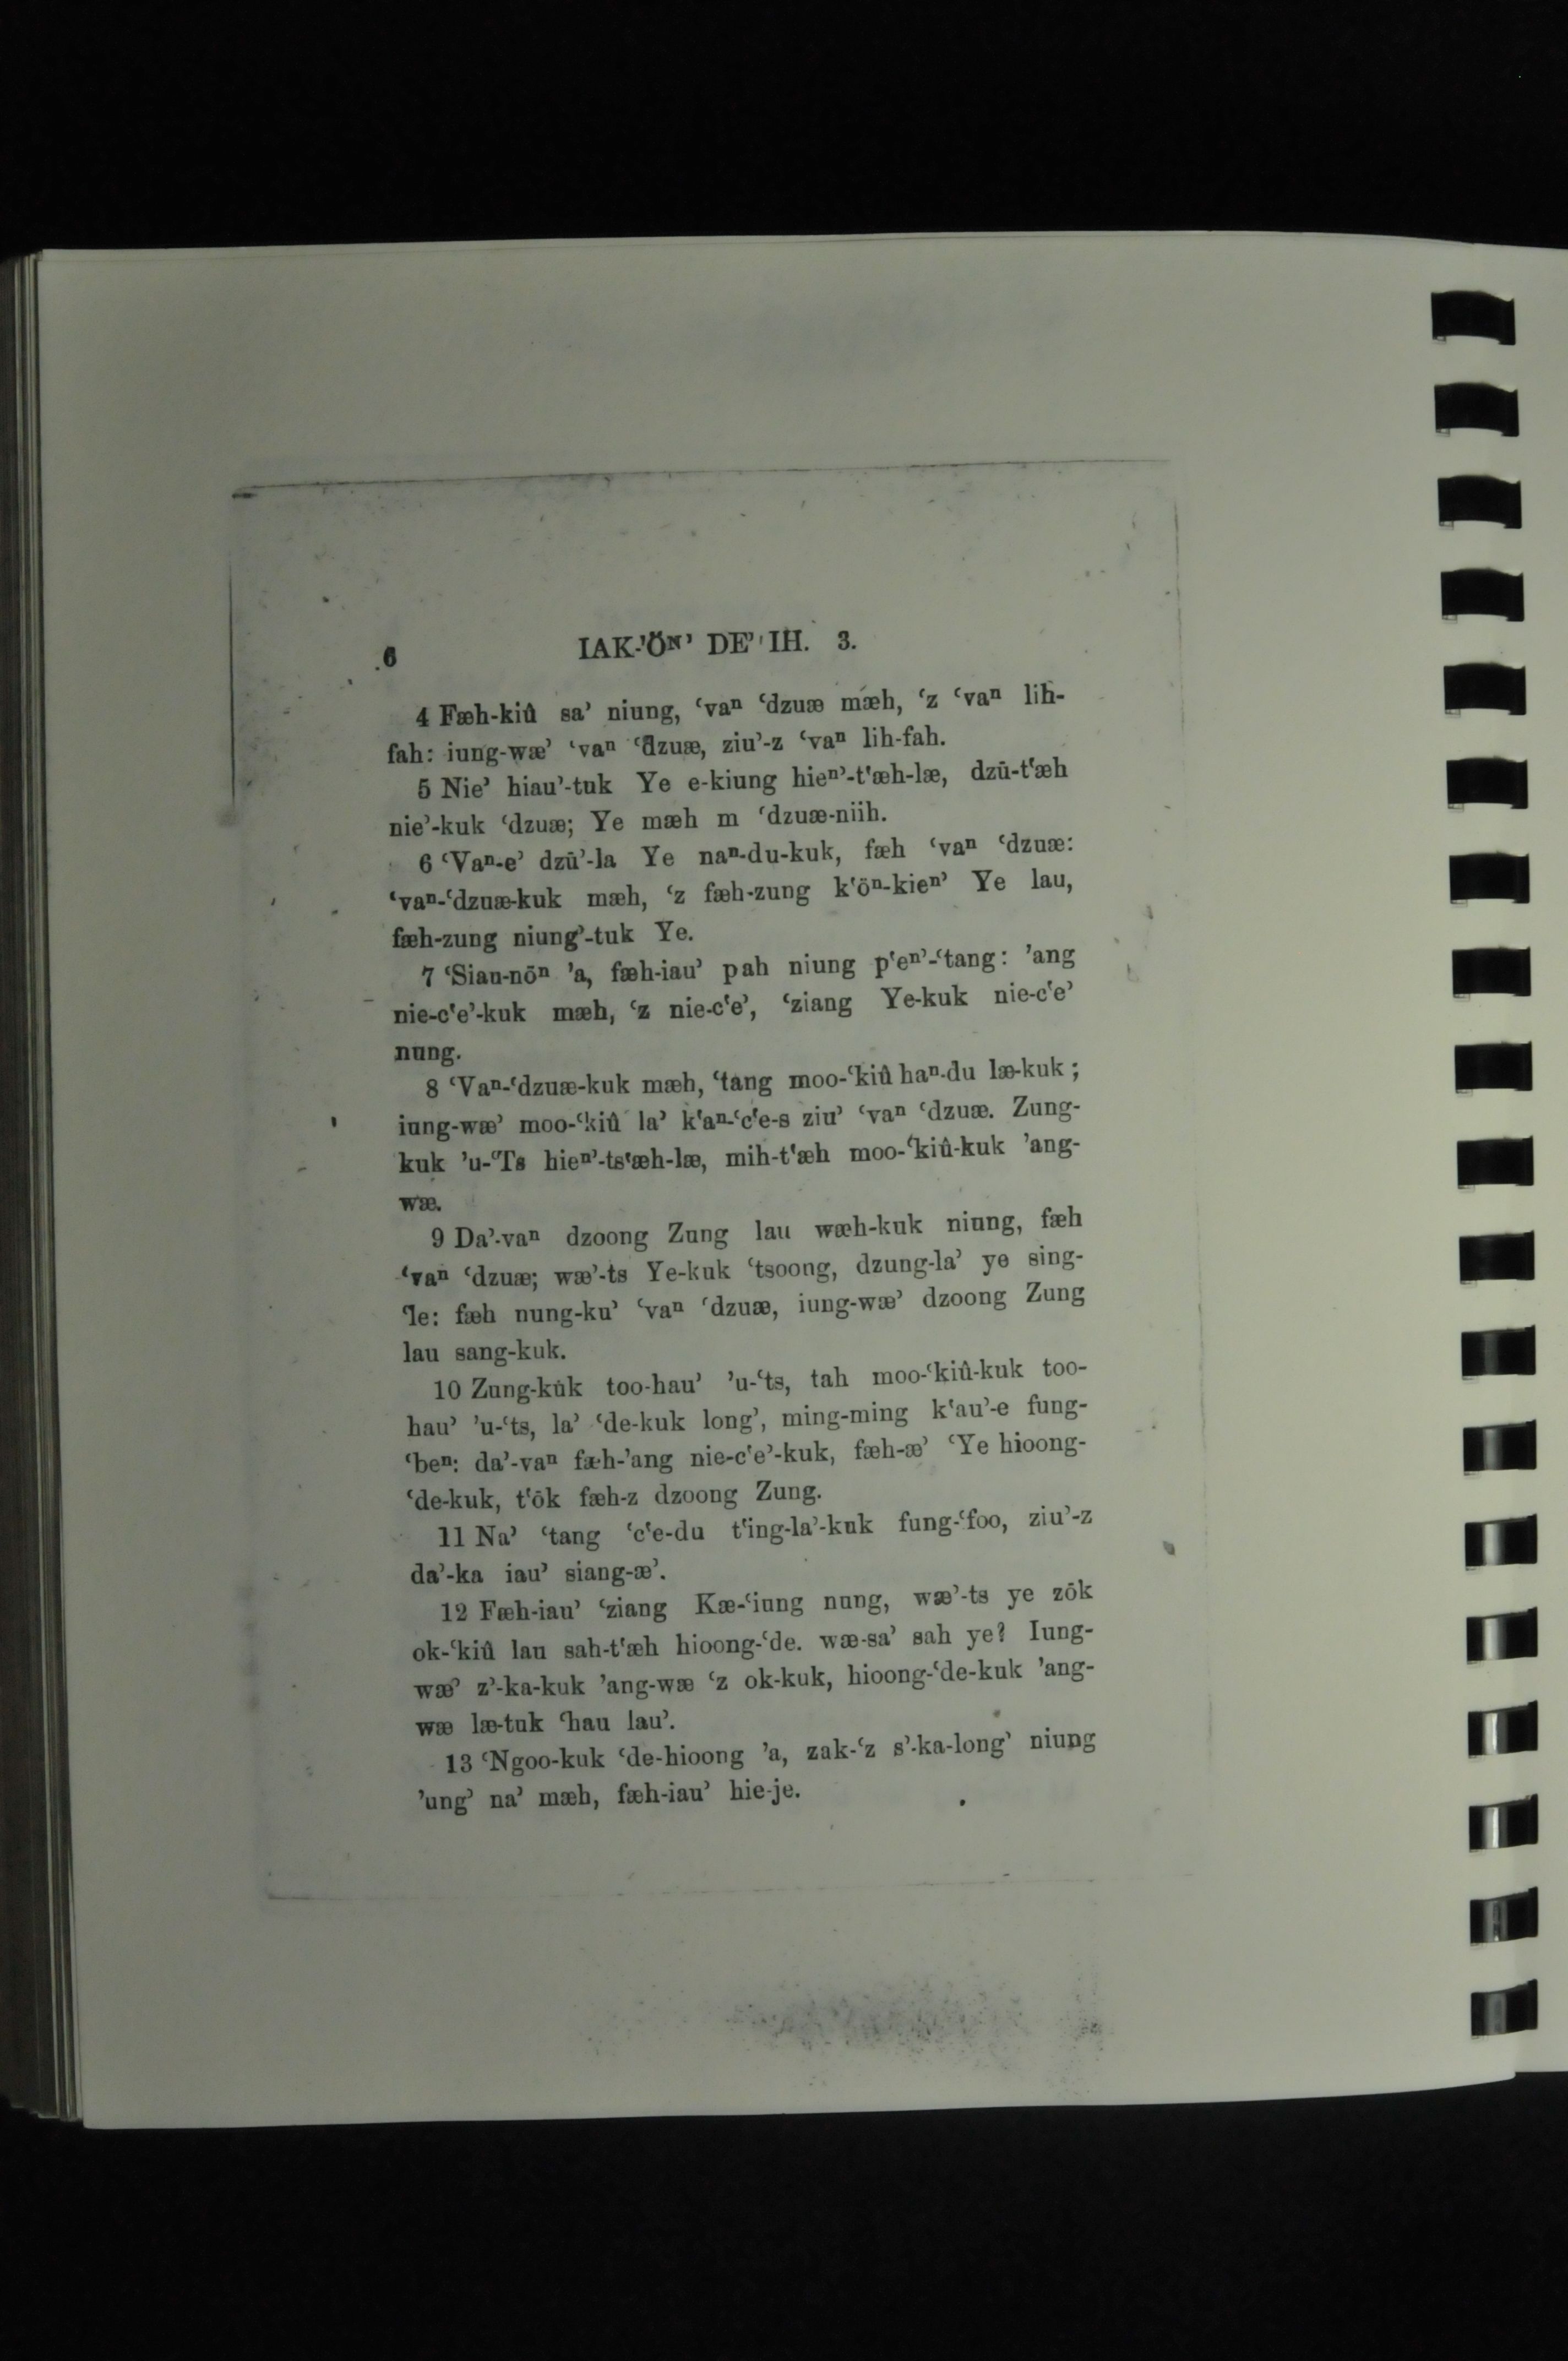 6 IAK-’ÖN’ DE’ IH. 3.
4 Fæh-kiû sa’ niung, ‘vaⁿ ‘dzuæ mæh, ‘z ‘vaⁿ lih-
fah: iung-wæ’ ‘vaⁿ ‘dzuæ, ziu’-z ‘vaⁿ lih-fah.
5 Nie’ hiau’-tuk Ye e-kiung hieⁿ’-t‘æh-læ, dzū-t‘æh
nie’-kuk ‘dzuæ; Ye mæh m ‘dzuæ-niih.
6 ‘Vaⁿ-e’ dzū’-la Ye naⁿ-du-kuk, fæh ‘vaⁿ ‘dzuæ:
‘vaⁿ-‘dzuæ-kuk mæh, ‘z fæh-zung k‘öⁿ-kieⁿ’ Ye lau,
fæh-zung niung’-tuk Ye.
7 ‘Siau-nöⁿ ’a, fæh-iau’ pah niung p‘eⁿ’-‘tang: ’ang
nie-c‘e’-kuk mæh, ‘z nie-c‘e’, ‘ziang Ye-kuk nie-c‘e’
nung.
8 ‘Vaⁿ-‘dzuæ-kuk mæh, ‘tang moo-‘kiû haⁿ-du læ-kuk;
iung-wæ’ moo-‘kiû la’ k‘aⁿ-‘c‘e-s ziu’ ‘vaⁿ ‘dzuæ. Zung-
kuk ’u-‘Ts hieⁿ’-ts‘æh-læ, mih-t‘æh moo-‘kiû-kuk ’ang-
wæ.
9 Da’-vaⁿ dzoong Zung lau wæh-kuk niung, fæh
‘vaⁿ ‘dzuæ; wæ’-ts Ye-kuk ‘tsoong, dzung-la’ ye sing-
‘le: fæh nung-ku’ ‘vaⁿ ‘dzuæ, iung-wæ’ dzoong Zung
lau sang-kuk.
10 Zung-kuk too-hau’ ’u-‘ts, tah moo-‘kiû-kuk too-
hau’ ’u-‘ts, la’ ‘de-kuk long’, ming-ming k‘au’-e fung-
‘beⁿ: da’-vaⁿ fæh-’ang nie-c‘e’-kuk, fæh-æ’ ‘Ye hioong-
‘de-kuk, t‘ök fæh-z dzoong Zung.
11 Na’ ‘tang ‘c‘e-du t‘ing-la’-kuk fung-‘foo, ziu’-z
da’-ka iau’ siang-æ’.
12 Fæh-iau’ ‘ziang Kæ-‘iung nung, wæ’-ts ye zök
ok-‘kiû lau sah-t‘æh hioong-‘de. wæ-sa’ sah ye? Iung-
wæ’ z’-ka-kuk ’ang-wæ ‘z ok-kuk, hioong-‘de-kuk ’ang-
wæ læ-tuk ‘hau lau’.
13 ‘Ngoo-kuk ‘de-hioong ’a, zak-‘z s’-ka-long’ niung
’ung’ na’ mæh, fæh-iau’ hie-je.